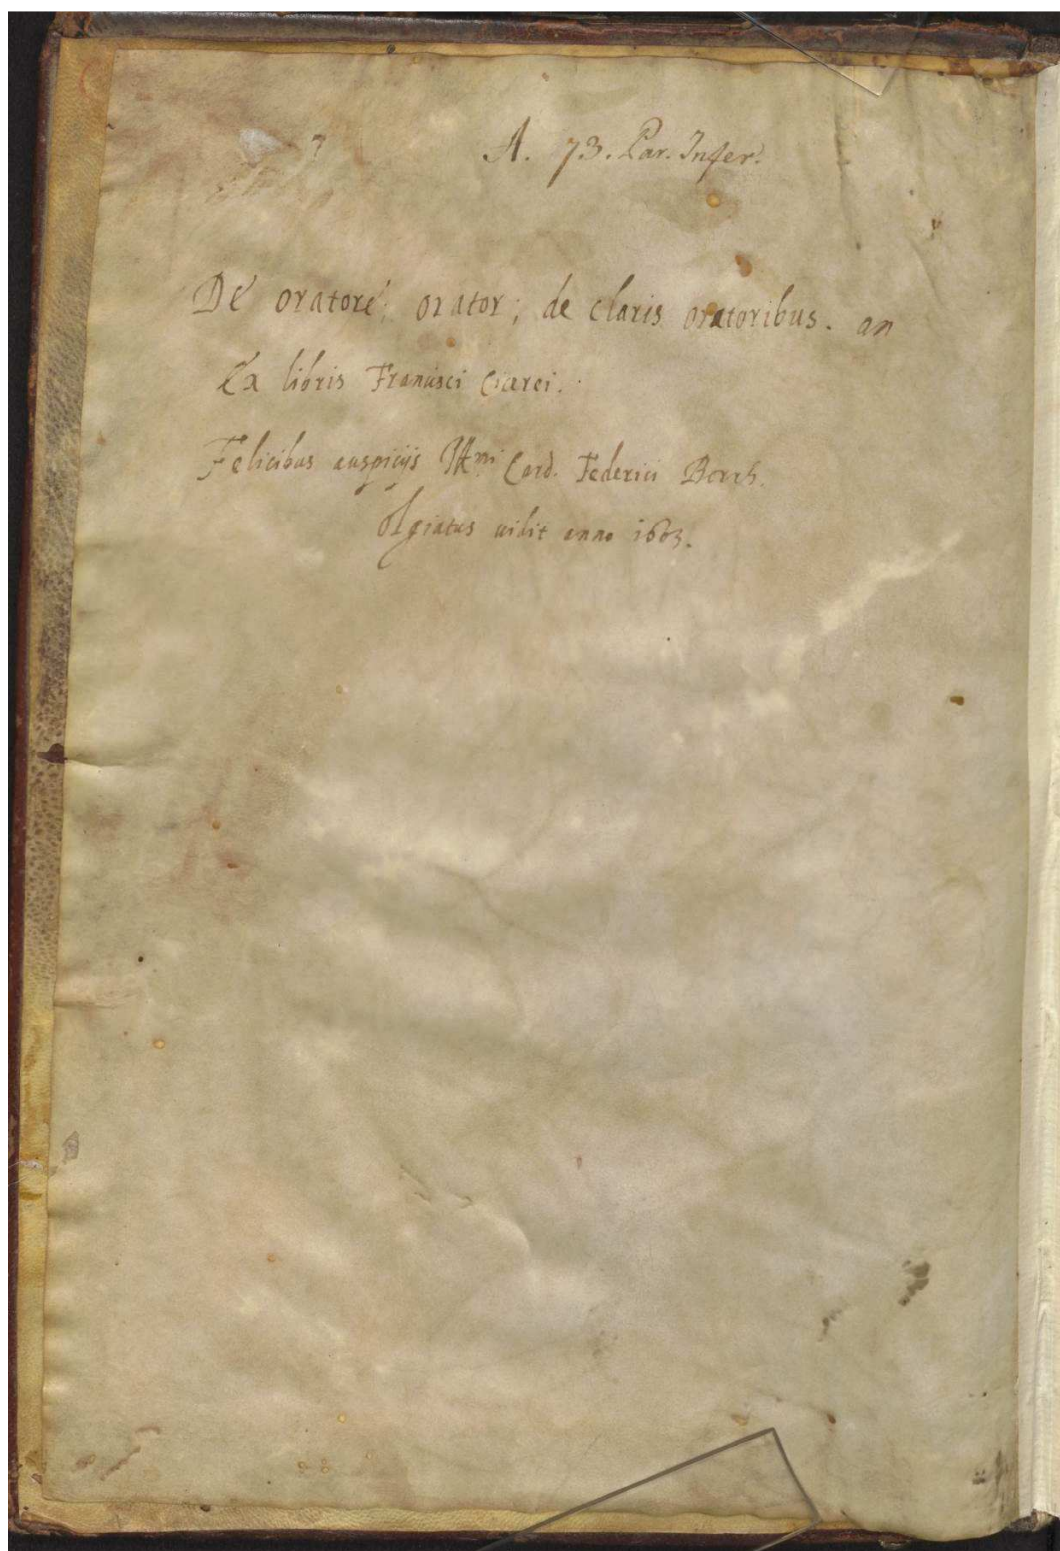 A. 73. Par. Infer.
De oratore; orator; de claris oratoribus. an
Ex libris Francisci Ciarei.
Felicibus auspicijs Ill.mi Card. Federici Borrh.
Olgiatus vidit anno 1603.